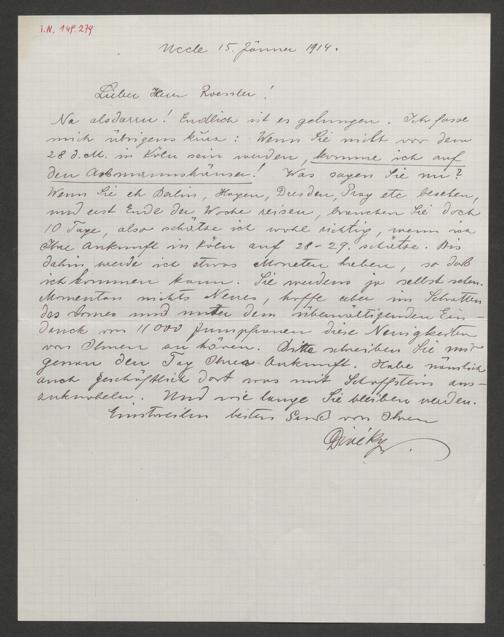 I.N. 149.279
Uccle 15. Jänner 1914.
Lieber Herr Roessler!
Na alsdann! Endlich ist es gelungen. Ich fasse
mich übrigens kurz: Wenn Sie nicht vor dem
28 d. M. in Köln sein werden, komme ich auf
den! Was sagen Sie nu?
Wenn Sie eh Berlin, Hagen, Dresden, Prag etc besehen,
und erst Ende der Woche reisen, brauchen Sie doch
10 Tage, also schätze ich wohl richtig, wenn ich
Ihre Ankunft in Köln auf 28-29. schätze. Bis
dahin werde ich etwas Moneten haben, so daß
ich kommen kann. Sie werdens ja selbst sehen.
Momentan nichts Neues, hoffe aber im Schatten
des Domes und unter dem überwältigenden Ein-
druck von 11000 Jungfrauen diese Neuigkeiten
von Ihnen zu hören. Bitte schreiben Sie mir
genau den Tag Ihrer Ankunft. Habe nämlich
auch geschäftlich dort was mit aus-
zuknobeln. Und wie lange Sie bleiben werden.
Einstweilen besten Gruß von Ihrem
Divéky.